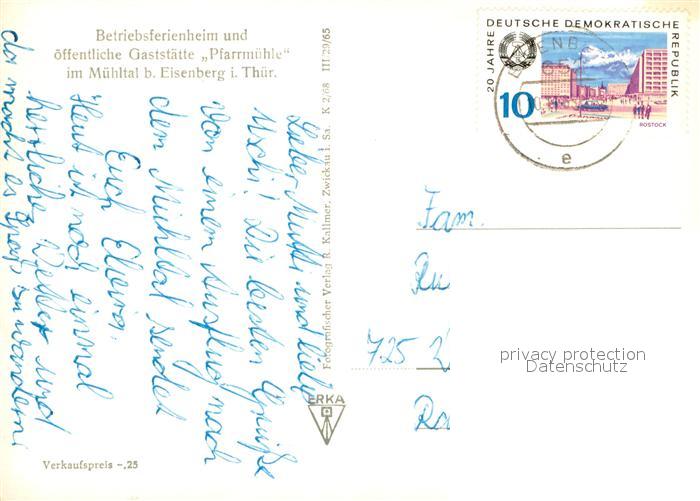 Betriebsferienheim und
öffentliche Gaststätte „Pfarrmühle“
im Mühltal b. Eisenberg i. Thür.
Lieber Mutti und liebe
Uschi! Die besten Grüße
von einem Ausflug nach
dem Mühltal sendet
Euch
Heut ist noch einmal
herrliches Wetter und
da macht es Spaß zu wandern.
Fotografischer Verlag R. Kallmer, Zwickau i. Sa. K 2/68 III/29/65
ERKA
Verkaufspreis -,25
20 JAHRE DEUTSCHE DEMOKRATISCHE REPUBLIK
10
ROSTOCK
e
Fam.
Ru
725
Ra
privacy protection
Datenschutz